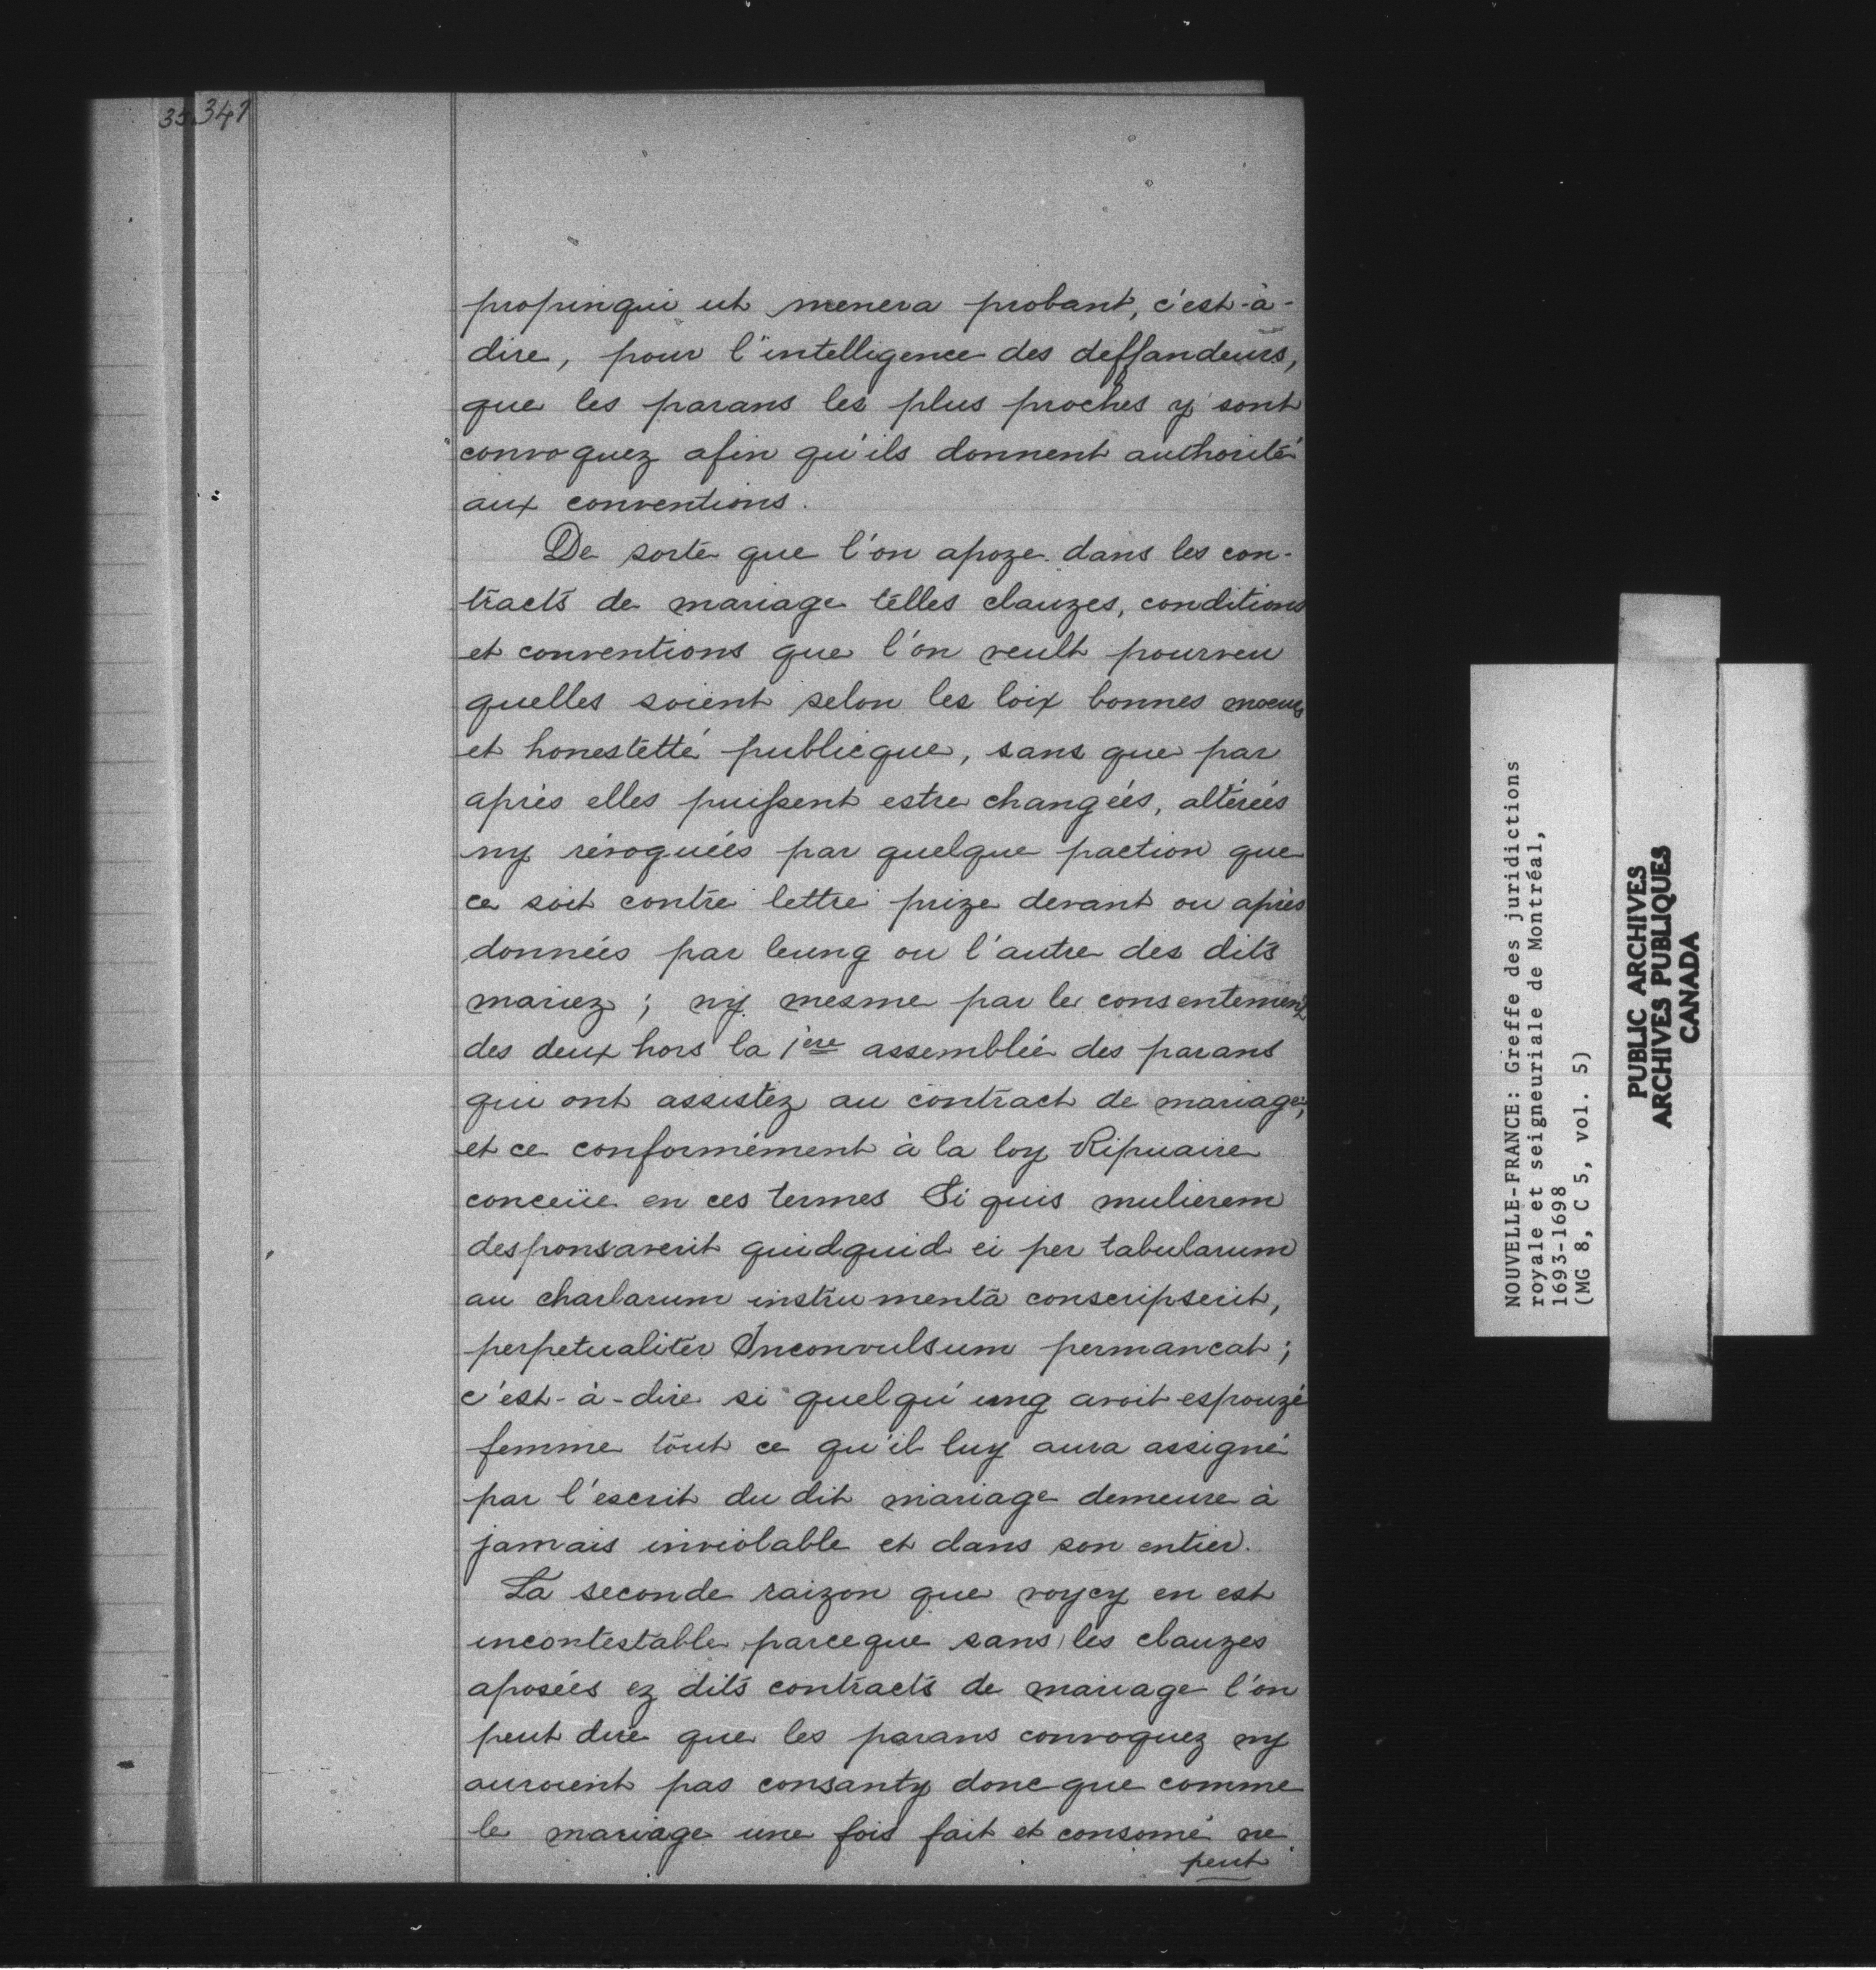 35
347
propinqui ut menera probant, c'est-à-
dire, pour l'intelligence des deffandeurs,
que les parans les plus proches y sont
convoquez afin qu'ils donnent authorité
aux conventions.
De sorte que l'on apoze dans les con-
tracts de mariage telles clauzes, conditions
et conventions que l'on veult pourveu
quelles soient selon les loix bonnes moeurs
et honestetté publicque, sans que par
après elles puissent estre changées, altérées
ny révoquées par quelque paction que
ce soit contre lettre prize devant ou après
données par leung ou l'autre des dits
mariez; ny mesme par le consentement
des deux hors la 1ère assemblée des parans
qui ont assistez au contract de mariage,
et ce conformément à la loy Ripuaire
conceüe en ces termes Si quis mulierem
desponsaverit quidquid ei per tabularum
au charlarum instrumenta conscripserit,
perpetualiter Inconvulsum permancat;
c'est-à-dire si quelqu'ung avoit espouzé
femme tout ce qu'il luy aura assigné
par l'escrit du dit mariage demeure à
jamais inviolable et dans son entier.
La seconde raizon que voycy en est
incontestable parceque sans les clauzes
aposées ez dits contracts de mariage l'on
peut dire que les parans convoquez ny
auroient pas consanty donc que comme
le mariage une fois fait et consomé ne
peut
NOUVELLE-FRANCE: Greffe des juridictions
royale et seigneuriale de Montréal,
1693-1698
(MG 8, C 5, vol. 5)
PUBLIC ARCHIVES
ARCHIVES PUBLIQUES
CANADA